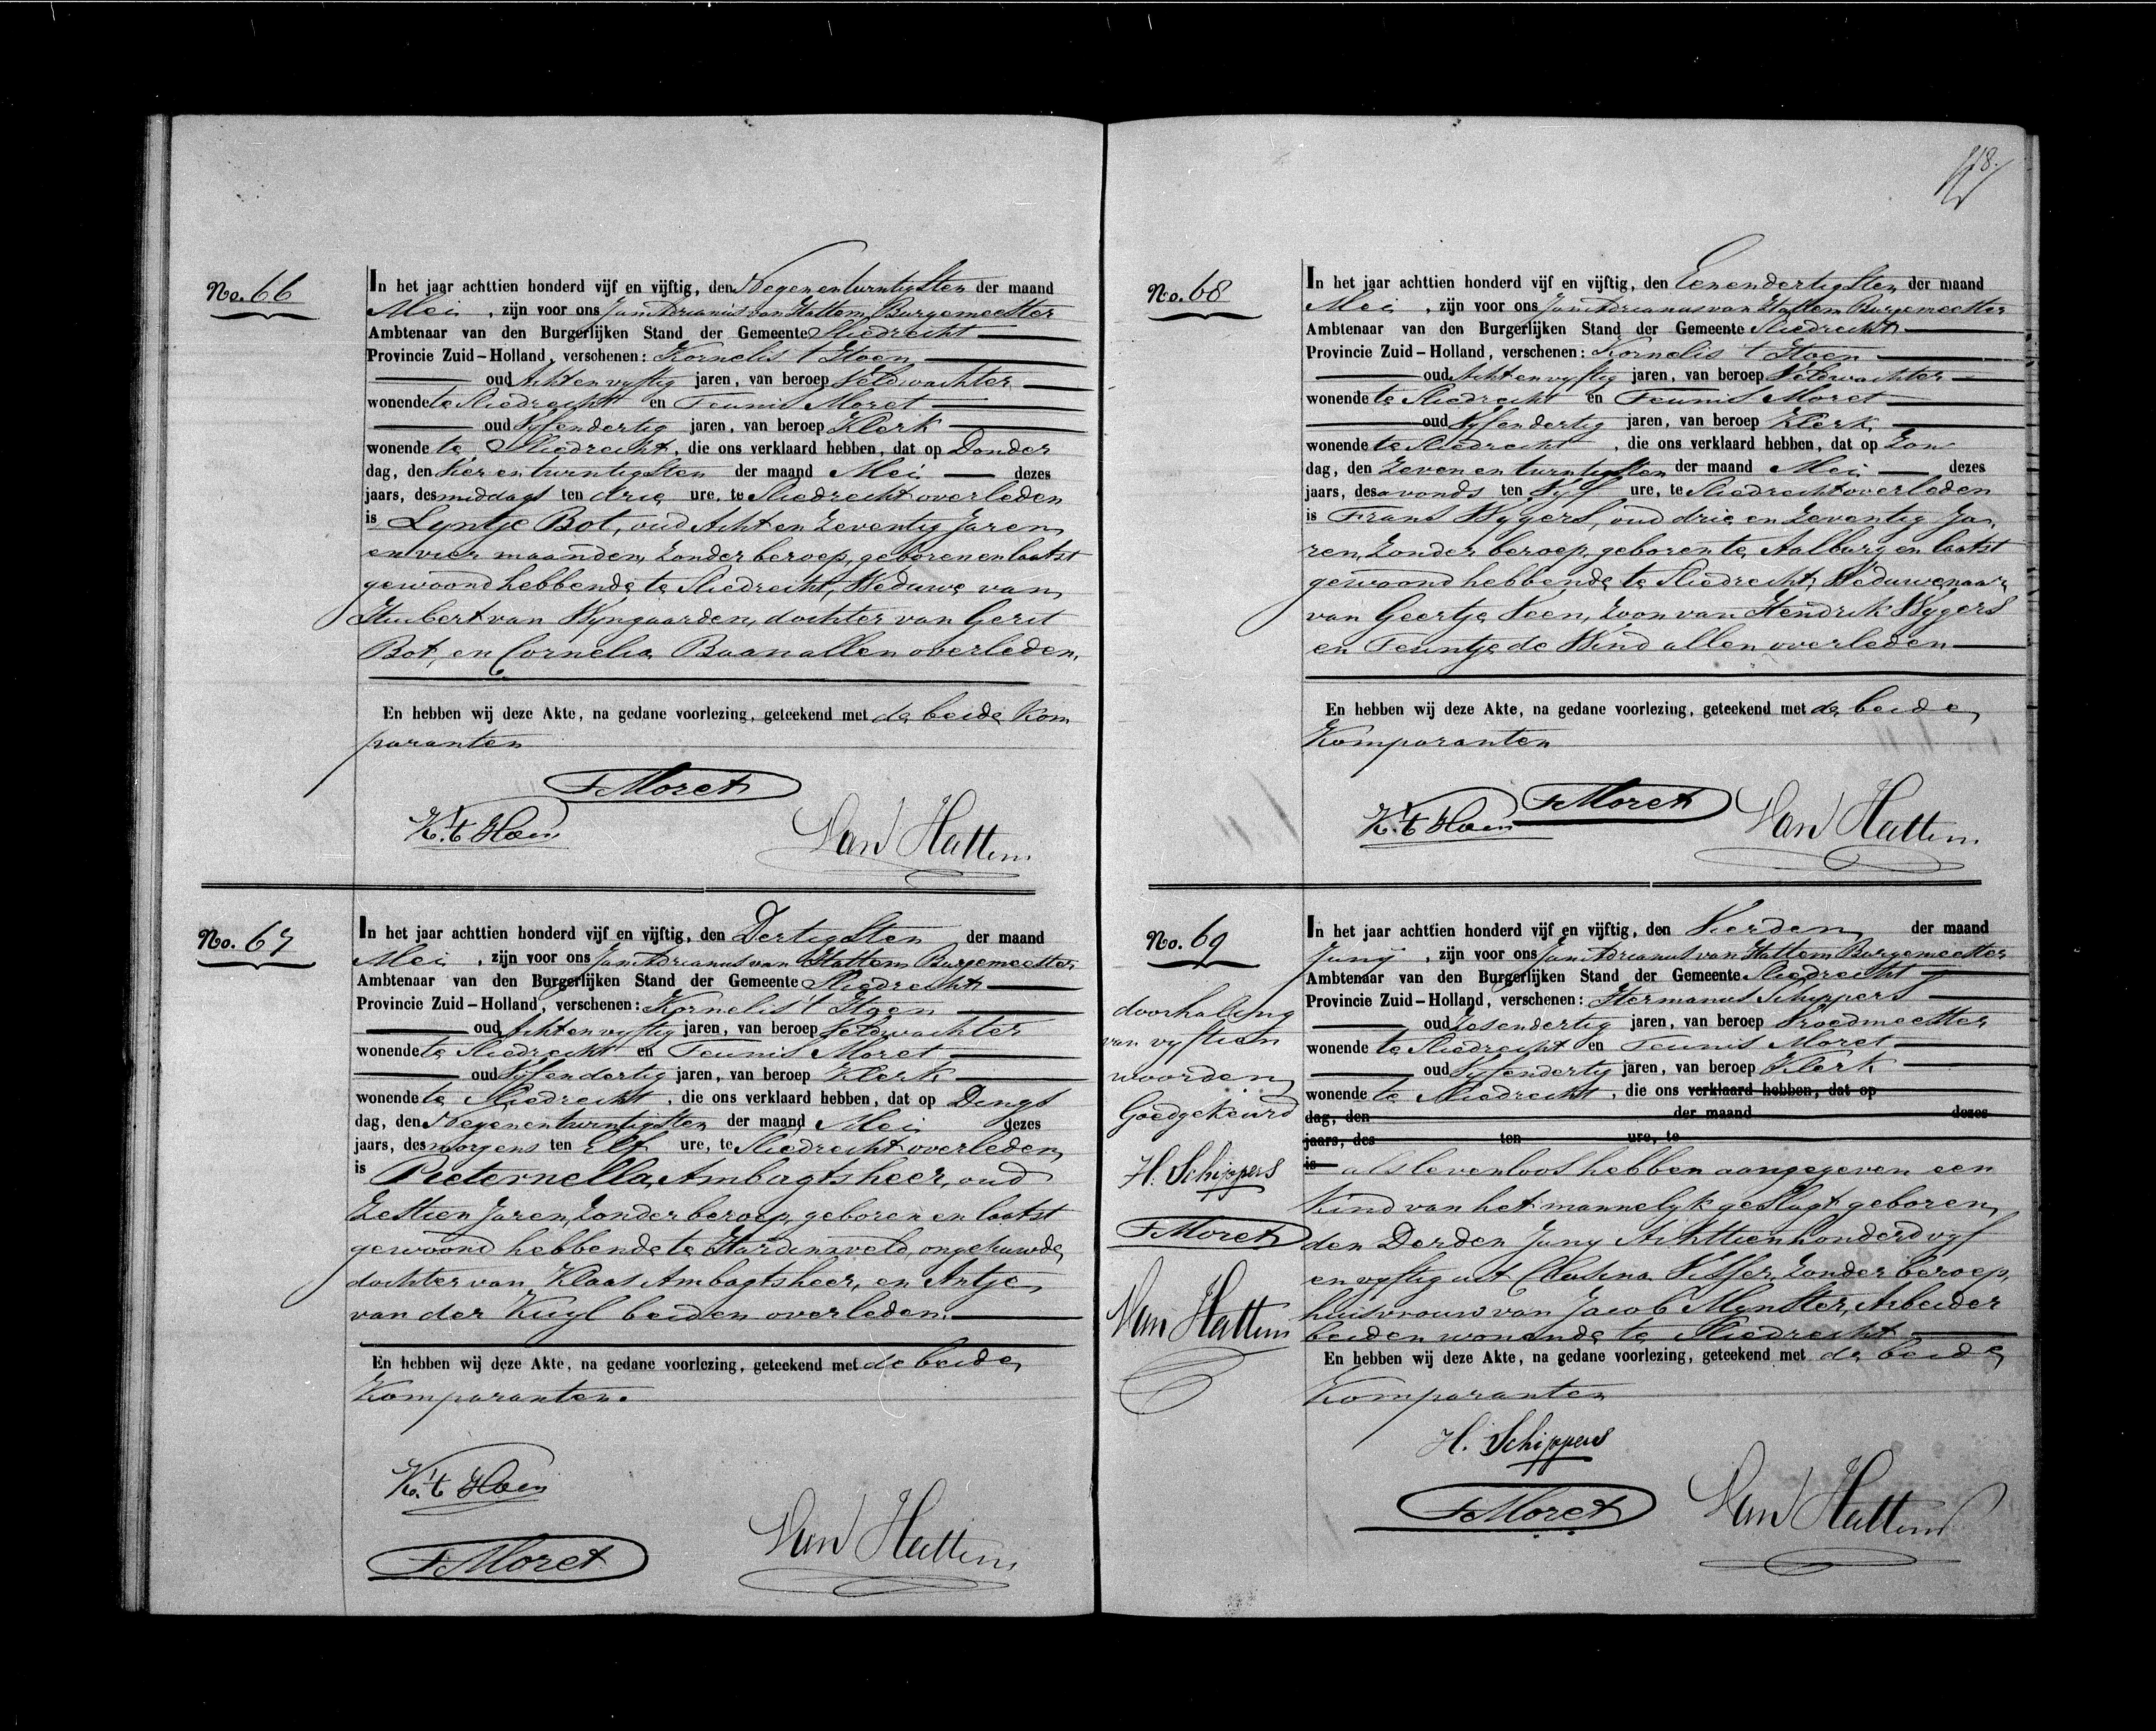 No. 66
In het jaar achttien honderd vijf en vijftig, den Negenentwintigsten der maand
Mei, zijn voor ons Jan Adrianus van Hattem Burgemeester
Ambtenaar van den Burgerlijken Stand der Gemeente Sliedrecht
Provincie Zuid-Holland, verschenen: Kornelis 't Hoen
oud Achtenvyftig jaren, van beroep Veldwachter
wonende te Sliedrecht en Teunis Moret
oud Vyfendertig jaren, van beroep Klerk
wonende te Sliedrecht, die ons verklaard hebben, dat op Donder
dag, den Vierentwintigsten der maand Mei dezes
jaars, des middags ten drie ure, te Sliedrecht overleden
is Lyntje Bot, oud Acht en Zeventig Jaren
en vier maanden, Zonder beroep, geboren en laatst
gewoond hebbende te Sliedrecht, Weduwe van
Huibert van Wyngaarden, dochter van Gerit
Bot, en Cornelia Baan allen overleden.
En hebben wij deze Akte, na gedane voorlezing, geteekend met de beide Kom
paranten
T Moret
K. 't Hoen
Van Hattem
No. 67
In het jaar achttien honderd vijf en vijftig, den Dertigsten der maand
Mei, zijn voor ons Jan Adrianus van Hattem Burgemeester
Ambtenaar van den Burgerlijken Stand der Gemeente Sliedrecht
Provincie Zuid-Holland, verschenen: Kornelis 't Hoen
oud Achtenvyftig jaren, van beroep Veldwachter
wonende te Sliedrecht en Teunis Moret
oud Vyfendertig jaren, van beroep Klerk
wonende te Sliedrecht, die ons verklaard hebben, dat op Dings
dag, den Negenentwintigsten der maand Mei dezes
jaars, des morgens ten Elf ure, te Sliedrecht overleden
is Pieternella Ambagtsheer, oud
Zestien Jaren, Zonder beroep, geboren en laatst
gewoond hebbende te Hardinxveld, ongehuwde
dochter van Klaas Ambagtsheer, en Antje
van der Kuyl beiden overleden.
En hebben wij deze Akte, na gedane voorlezing, geteekend met de beide
Komparanten.
K. 't Hoen
T Moret
Van Hattem
18.
No. 68
In het jaar achttien honderd vijf en vijftig, den Eenendertigsten der maand
Mei, zijn voor ons Jan Adrianus van Hattem Burgemeester
Ambtenaar van den Burgerlijken Stand der Gemeente Sliedrecht
Provincie Zuid-Holland, verschenen: Kornelis 't Hoen
oud Achtenvyftig jaren, van beroep Veldwachter
wonende te Sliedrecht en Teunis Moret
oud Vyfendertig jaren, van beroep Klerk
wonende te Sliedrecht, die ons verklaard hebben, dat op Zon
dag, den Zevenentwintigsten der maand Mei dezes
jaars, des avonds ten Vyf ure, te Sliedrecht overleden
is Frans Wygers, oud drie en Zeventig Ja
ren, Zonder beroep, geboren te Aalburg en laatst
gewoond hebbende te Sliedrecht, Weduwenaar
van Geertje Veen, Zoon van Hendrik Wygers
en Teuntje de Wind allen overleden
En hebben wij deze Akte, na gedane voorlezing, geteekend met de beide
Komparanten
K. 't Hoen
T Moret
Van Hattem
No. 69
doorhaling
van vyftien
woorden
Goedgekeurd
H. Schippers
T Moret
Van Hattem
In het jaar achttien honderd vijf en vijftig, den Vierden der maand
Juny, zijn voor ons Jan Adrianus van Hattem Burgemeester
Ambtenaar van den Burgerlijken Stand der Gemeente Sliedrecht
Provincie Zuid-Holland, verschenen: Hermanus Schippers
oud Zesendertig jaren, van beroep Vroedmeester
wonende te Sliedrecht en Teunis Moret
oud Vyfendertig jaren, van beroep Klerk
wonende te Sliedrecht, die ons verklaard hebben, dat op
dag, den der maand dezes
jaars, des ten ure, te
is als levenloos hebben aangegeven een
Kind van het mannelyk geslagt geboren
den Derden Juny Achttienhonderd vyf
en vyftig uit Clasina Visser, Zonder beroep,
huisvrouw van Jacob Mynster, Arbeider
beiden wonende te Sliedrecht
En hebben wij deze Akte, na gedane voorlezing, geteekend met de beide
Komparanten
H. Schippers
T Moret
Van Hattem